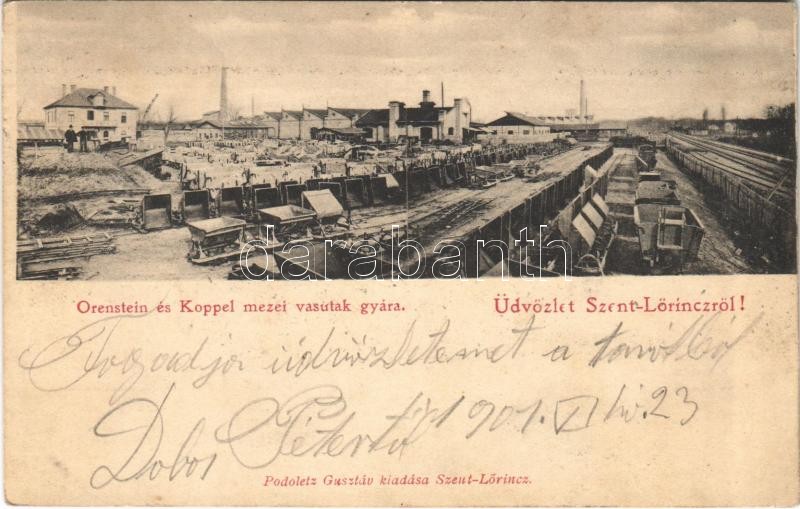 darabanth
Orenstein és Koppel mezei vasútak gyára.
Üdvözlet Szent-Lőrinczről!
Fogadja üdvözletemet a
Dobos Pétertől 1901. VI hó. 23
Podoletz Gusztáv kiadása Szent-Lőrincz.